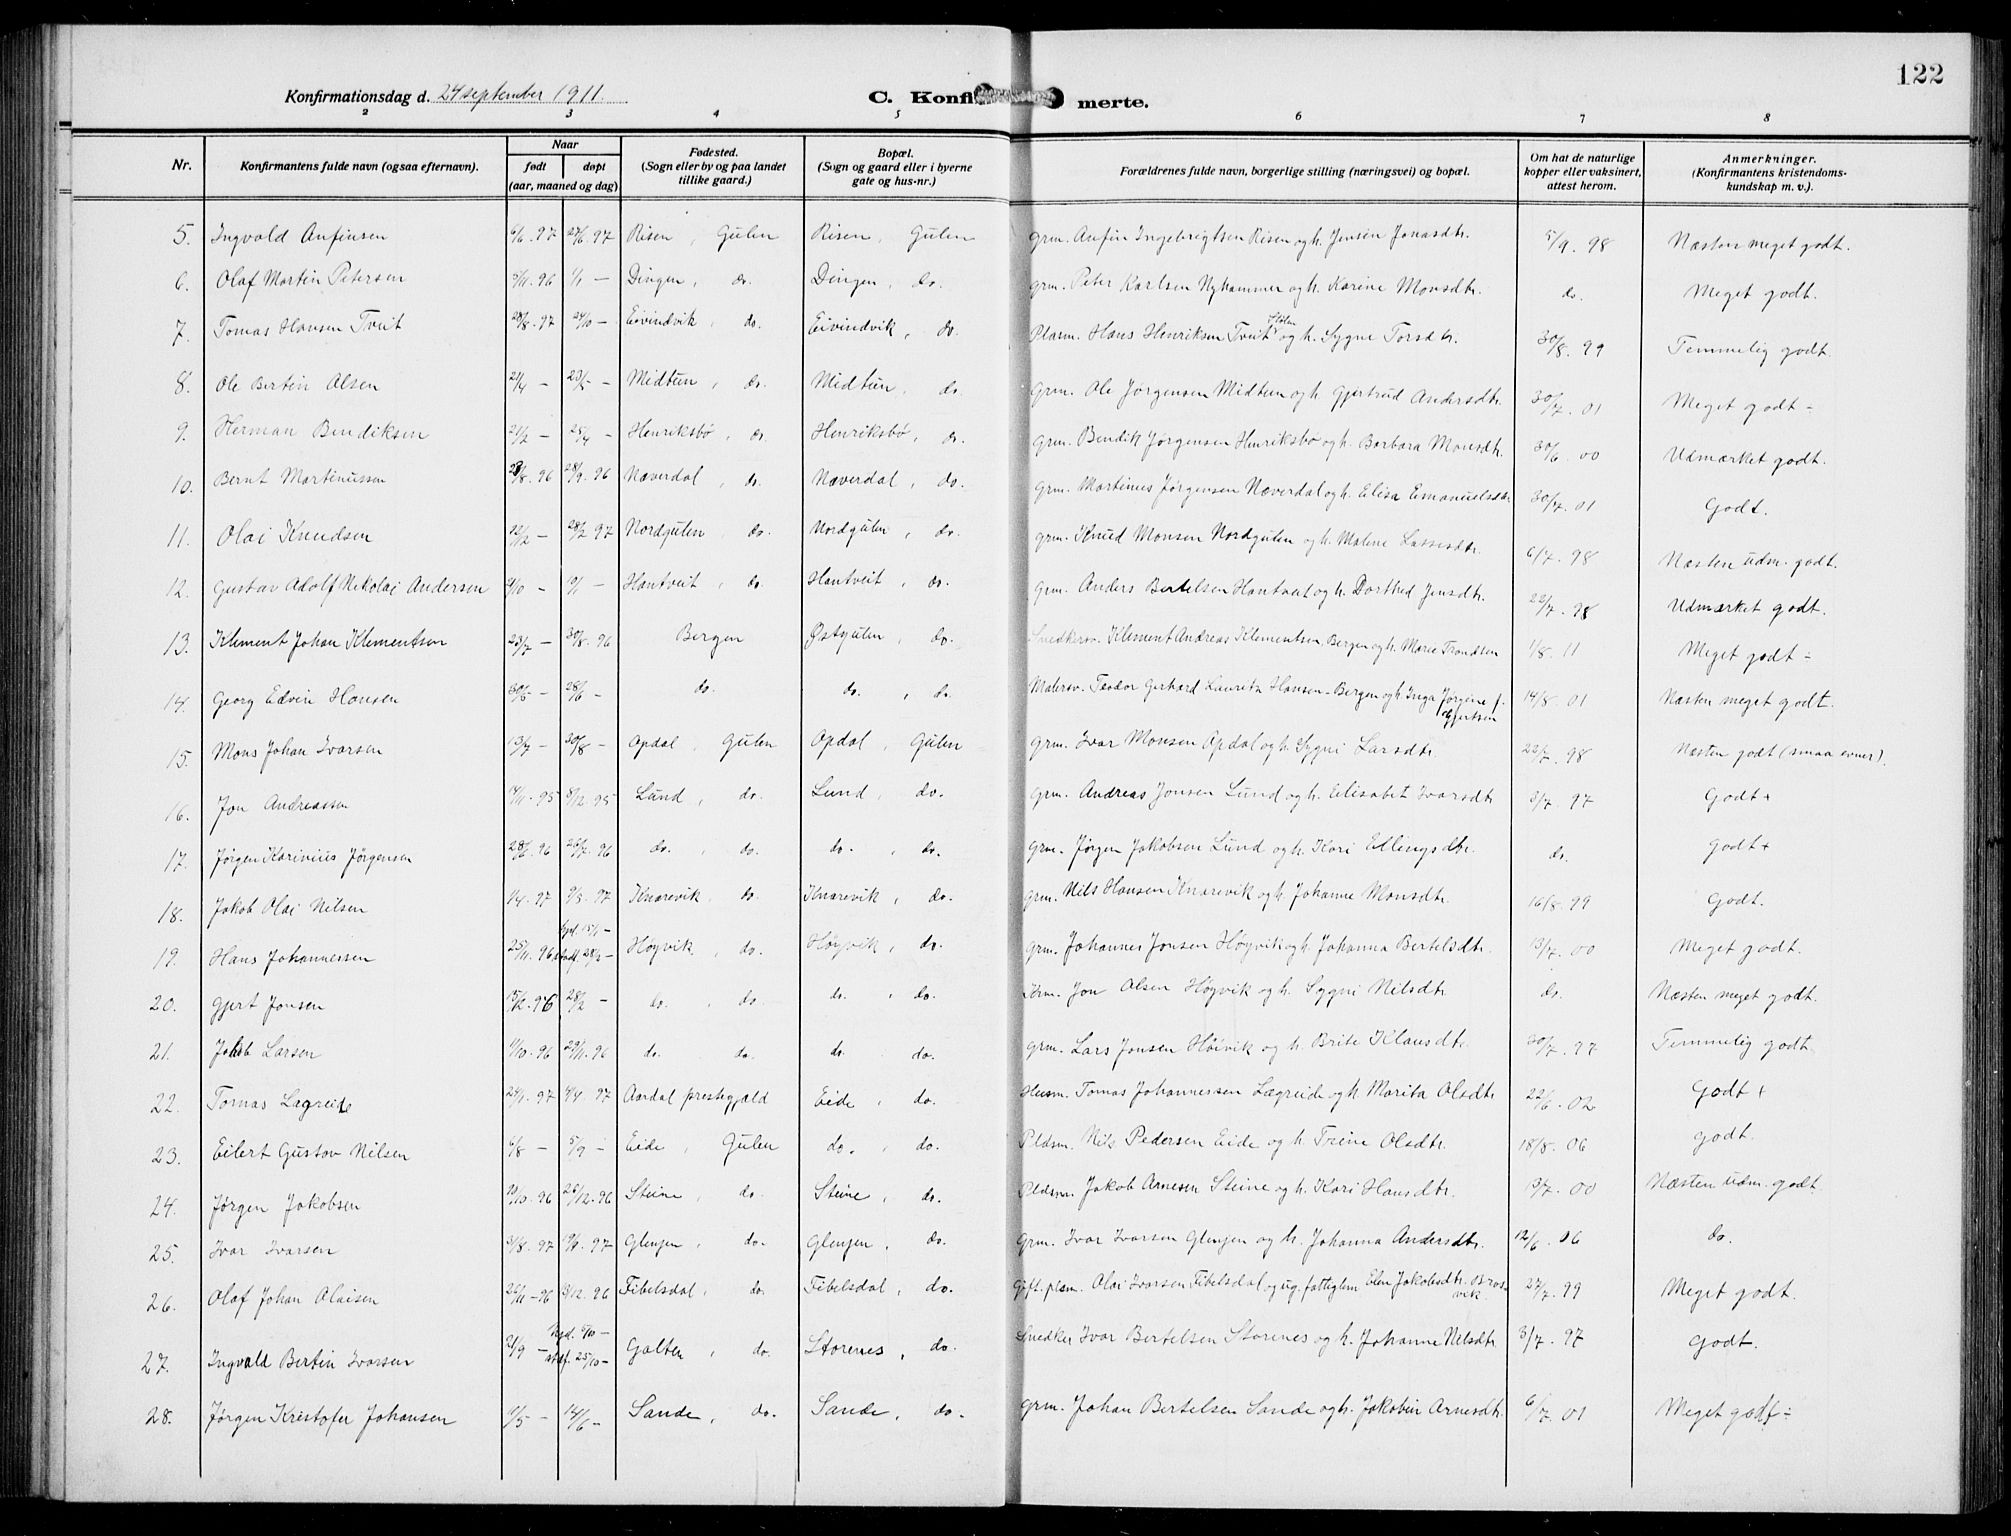 122
Konfirmationsdag d. 24 september 1911 C. Konfi merte.
2 3 4 5 6 7 8
Nr. Konfirmantens fulde navn (ogsaa efternavn). Naar født døpt (aar, maaned og dag) Fødested. (Sogn eller by og paa landet tillike gaard.) Bopæl. (Sogn og gaard eller i byerne gate og hus-nr.) Forældrenes fulde navn, borgerlige stilling (næringsvei) og bopæl. Om hat de naturlige kopper eller vaksinert, attest herom. Anmerkninger. (Konfirmantens kristendomskundskap m. v.).
5. Ingvald Anfinsen 6/6 97 27/6 97 Risen, Gulen Risen, Gulen Grm. Anfin Ingebrigtsen Risen og h. Jensin Jonasdtr. 5/9. 98 Næsten meget godt.
6. Olaf Martin Petersen 5/11. 96 1/1 — Dingen, do. Dingen, do. Grm. Peter Karlsen Nyhammer og h. Karine Monsdtr. do. Meget godt.
7. Tomas Hansen Tveit 28/8. 97 24/10 — Eivindvik, do. Eivindvik, do. Plasm. Hans Henriksen Tveit og h. Sygne Torsdtr. 30/8. 99 Temmelig godt.
8. Ole Bertin Olsen 21/4 — 23/5 — Midtun, do. Midtun, do. Grm. Ole Jørgensen Midtun og h. Gjertrud Andersdtr. 30/7. 01 Meget godt ÷
9. Herman Bendiksen 21/2 — 25/4 — Henriksbø, do. Henriksbø, do. Grm. Bendik Jørgensen Henriksbø og h. Barbara Monsdtr. 30/6. 00 Udmærket godt.
10. Bernt Martinussen 23/8. 96 28/9. 96 Næverdal, do. Næverdal, do. Grm. Martinus Jørgensen Næverdal og h. Elisa Emanuelsdtr 30/7. 01 Godt.
11. Olai Knudsen 22/12 — 28/2 97 Nordgulen, do. Nordgulen, do. Grm. Knud Monsen Nordgulen og h. Malene Lassesdtr. 6/7. 98 Næsten udm. godt.
12. Gustav Adolf Nikolai Andersen /10 — 10/1 — Hantveit, do. Hantveit, do. Grm. Anders Bertelsen Hantveit og h. Dorthed Jensdtr. 22/7. 98 Udmærket godt.
13. Klement Johan Klementsen 23/7 — 30/8. 96 Bergen Østgulen, do. Snedkersv. Klement Andreas Klementsen, Bergen og h. Marie Trondsen 1/8. 11 Meget godt ÷
14. Georg Edvin Hansen 30/5 — 28/6 — do. do., do. Malersv. Teodor Gerhard Lauritz Hansen - Bergen og h. Inga Jørgine f. Gjertsen 14/8. 01 Næsten meget godt.
15. Mons Johan Ivarsen 13/7 — 30/8 — Opdal, Gulen Opdal, Gulen Grm. Ivar Monsen Opdal og h. Sygni Larsdtr. 22/7. 98 Næsten godt (smaa evner).
16. Jon Andreassen 14/11. 95 8/12 95 Lund, do. Lund, do. Grm. Andreas Jonsen Lund og h. Elisabet Ivarsdtr 3/7. 97 Godt +
17. Jørgen Karinius Jørgensen 28/6. 96 26/7. 96 do., do. do., do. Grm. Jørgen Jakobsen Lund og h. Kari Ellingsdtr. do. Godt +
18. Jakob Olai Nilsen 1/4. 97 9/5. 97 Knarevik, do. Knarevik, do. Grm. Nils Hansen Knarevik og h. Johanne Monsdtr. 16/8. 99 Godt.
19. Hans Johannessen 25/11. 96 hjd. 15/1 — stadf. 28/2 — Høyvik, do. Høyvik, do. Grm. Johannes Jonsen Høyvik og h. Johanna Bertelsdtr. 13/7. 00 Meget godt.
20. Gjert Jonsen 15/12. 96 28/2 — do., do. do., do. Jon Olsen Høyvik og h. Sygni Nilsdtr. do. Næsten meget godt.
21. Jakob Larsen 1/10. 96 29/11. 96 do. do. do. do. Grm. Lars Jonsen Høivik og h. Brite Klausdtr. 30/7. 97 Temmelig godt.
22. Tomas Lægreide 24/1. 97 4/4 97 Aardal prestegjæld Eide, do. Husm. Tomas Johannessen Lægreide og h. Marita Olsdtr. 22/6. 02 Godt +
23. Eilert Gustav Nilsen 6/8 — 5/9 — Eide, Gulen do., do. Pldsm. Nils Pedersen Eide og h. Trine Olsdtr. 18/8. 06 Godt.
24. Jørgen Jakobsen 10/10. 96 25/12. 96 Steine, do. Steine, do. Pldsm. Jakob Arnesen Steine og h. Kari Hansdtr. 13/7. 00 Næsten udm. godt
25. Ivar Ivarsen 3/8. 97 19/9. 97 Glenjen, do. Glenjen, do. Grm. Ivar Ivarsen Glenjen og h. Johanna Andersdtr. 12/6. 06 do.
26. Olaf Johan Olaisen 26/11 - 96 13/12. 96 Fibelsdal, do. Fibelsdal, do. Gift. plsm. Olai Ivarsen Fibelsdal og ug. fattiglem Elen Jakobsdtr. Brosvik. 27/7. 99 Meget godt.
27. Ingvald Bertin Ivarsen 21/9 — hjd. 5/10 — stdf. 25/10 — Galten, do. Storenes, do. Snedker Ivar Bertelsen Storenes og h. Johanne Nilsdtr. 3/7. 97 Godt.
28. Jørgen Kristofer Johansen 1/5 — 14/6 — Sande, do. Sande, do. Grm. Johan Bertelsen Sande og h. Jakobin Arnesdtr. 6/7. 01 Meget godt ÷